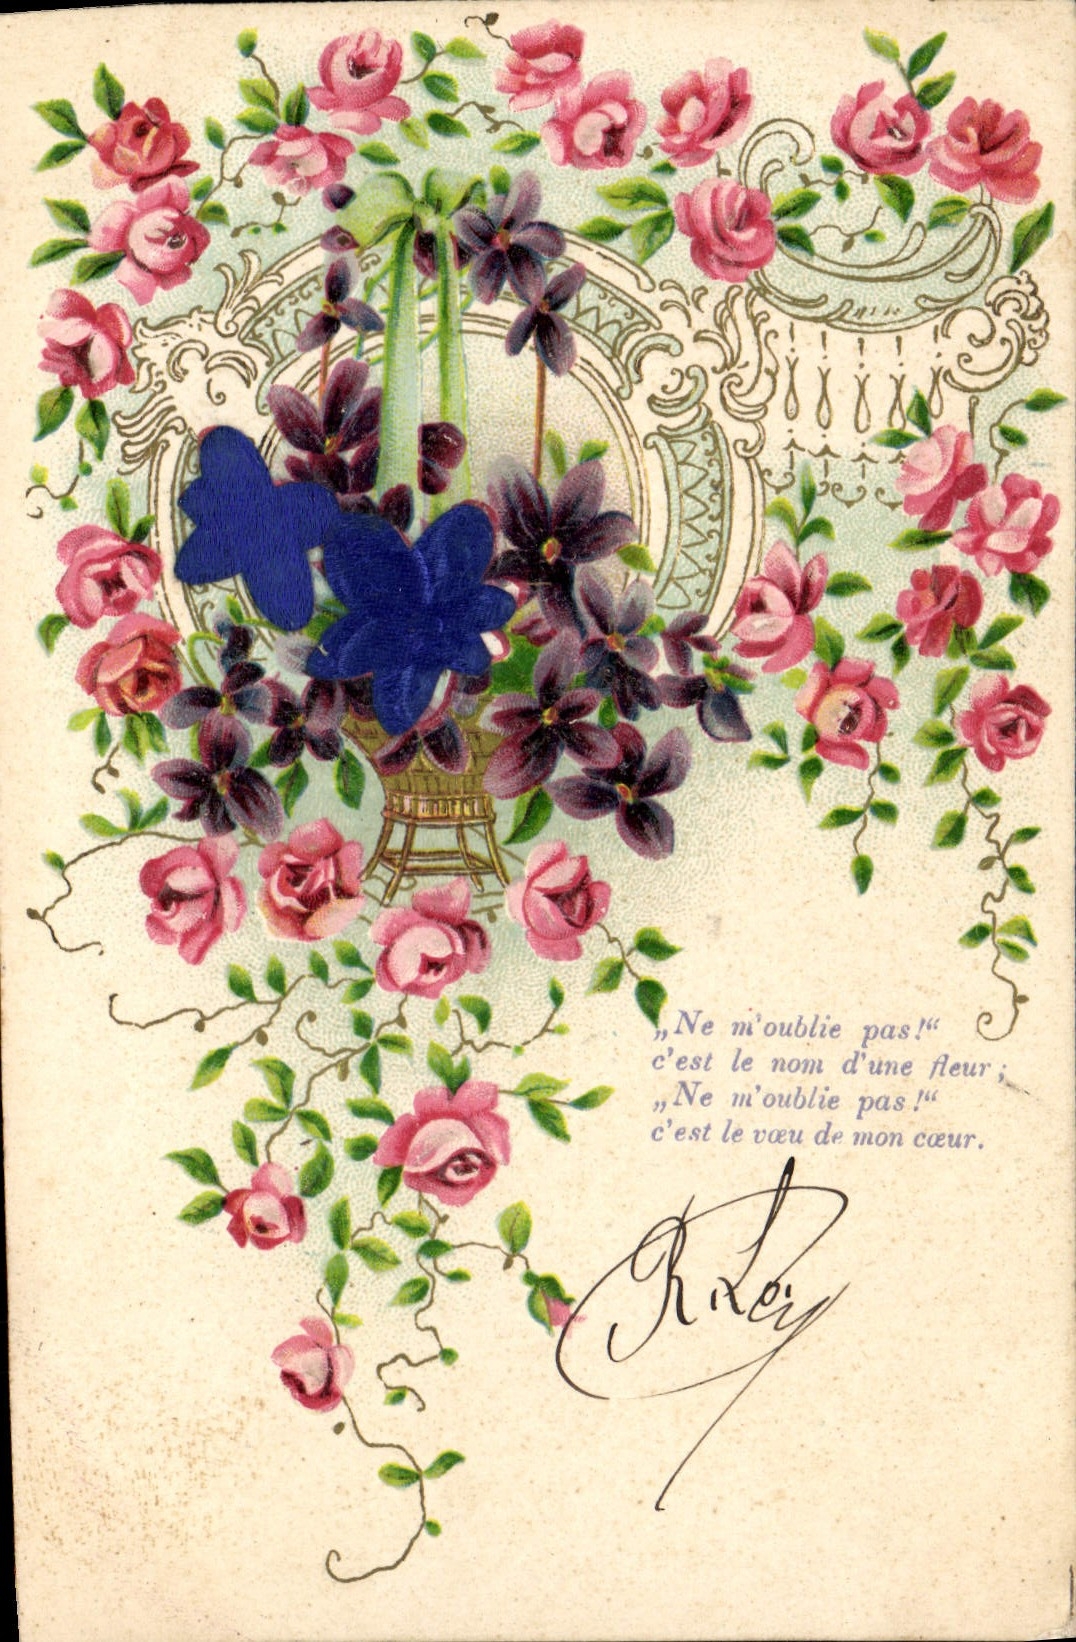 „Ne m'oublie pas!“
c'est le nom d'une fleur;
„Ne m'oublie pas!“
c'est le vœu de mon cœur.